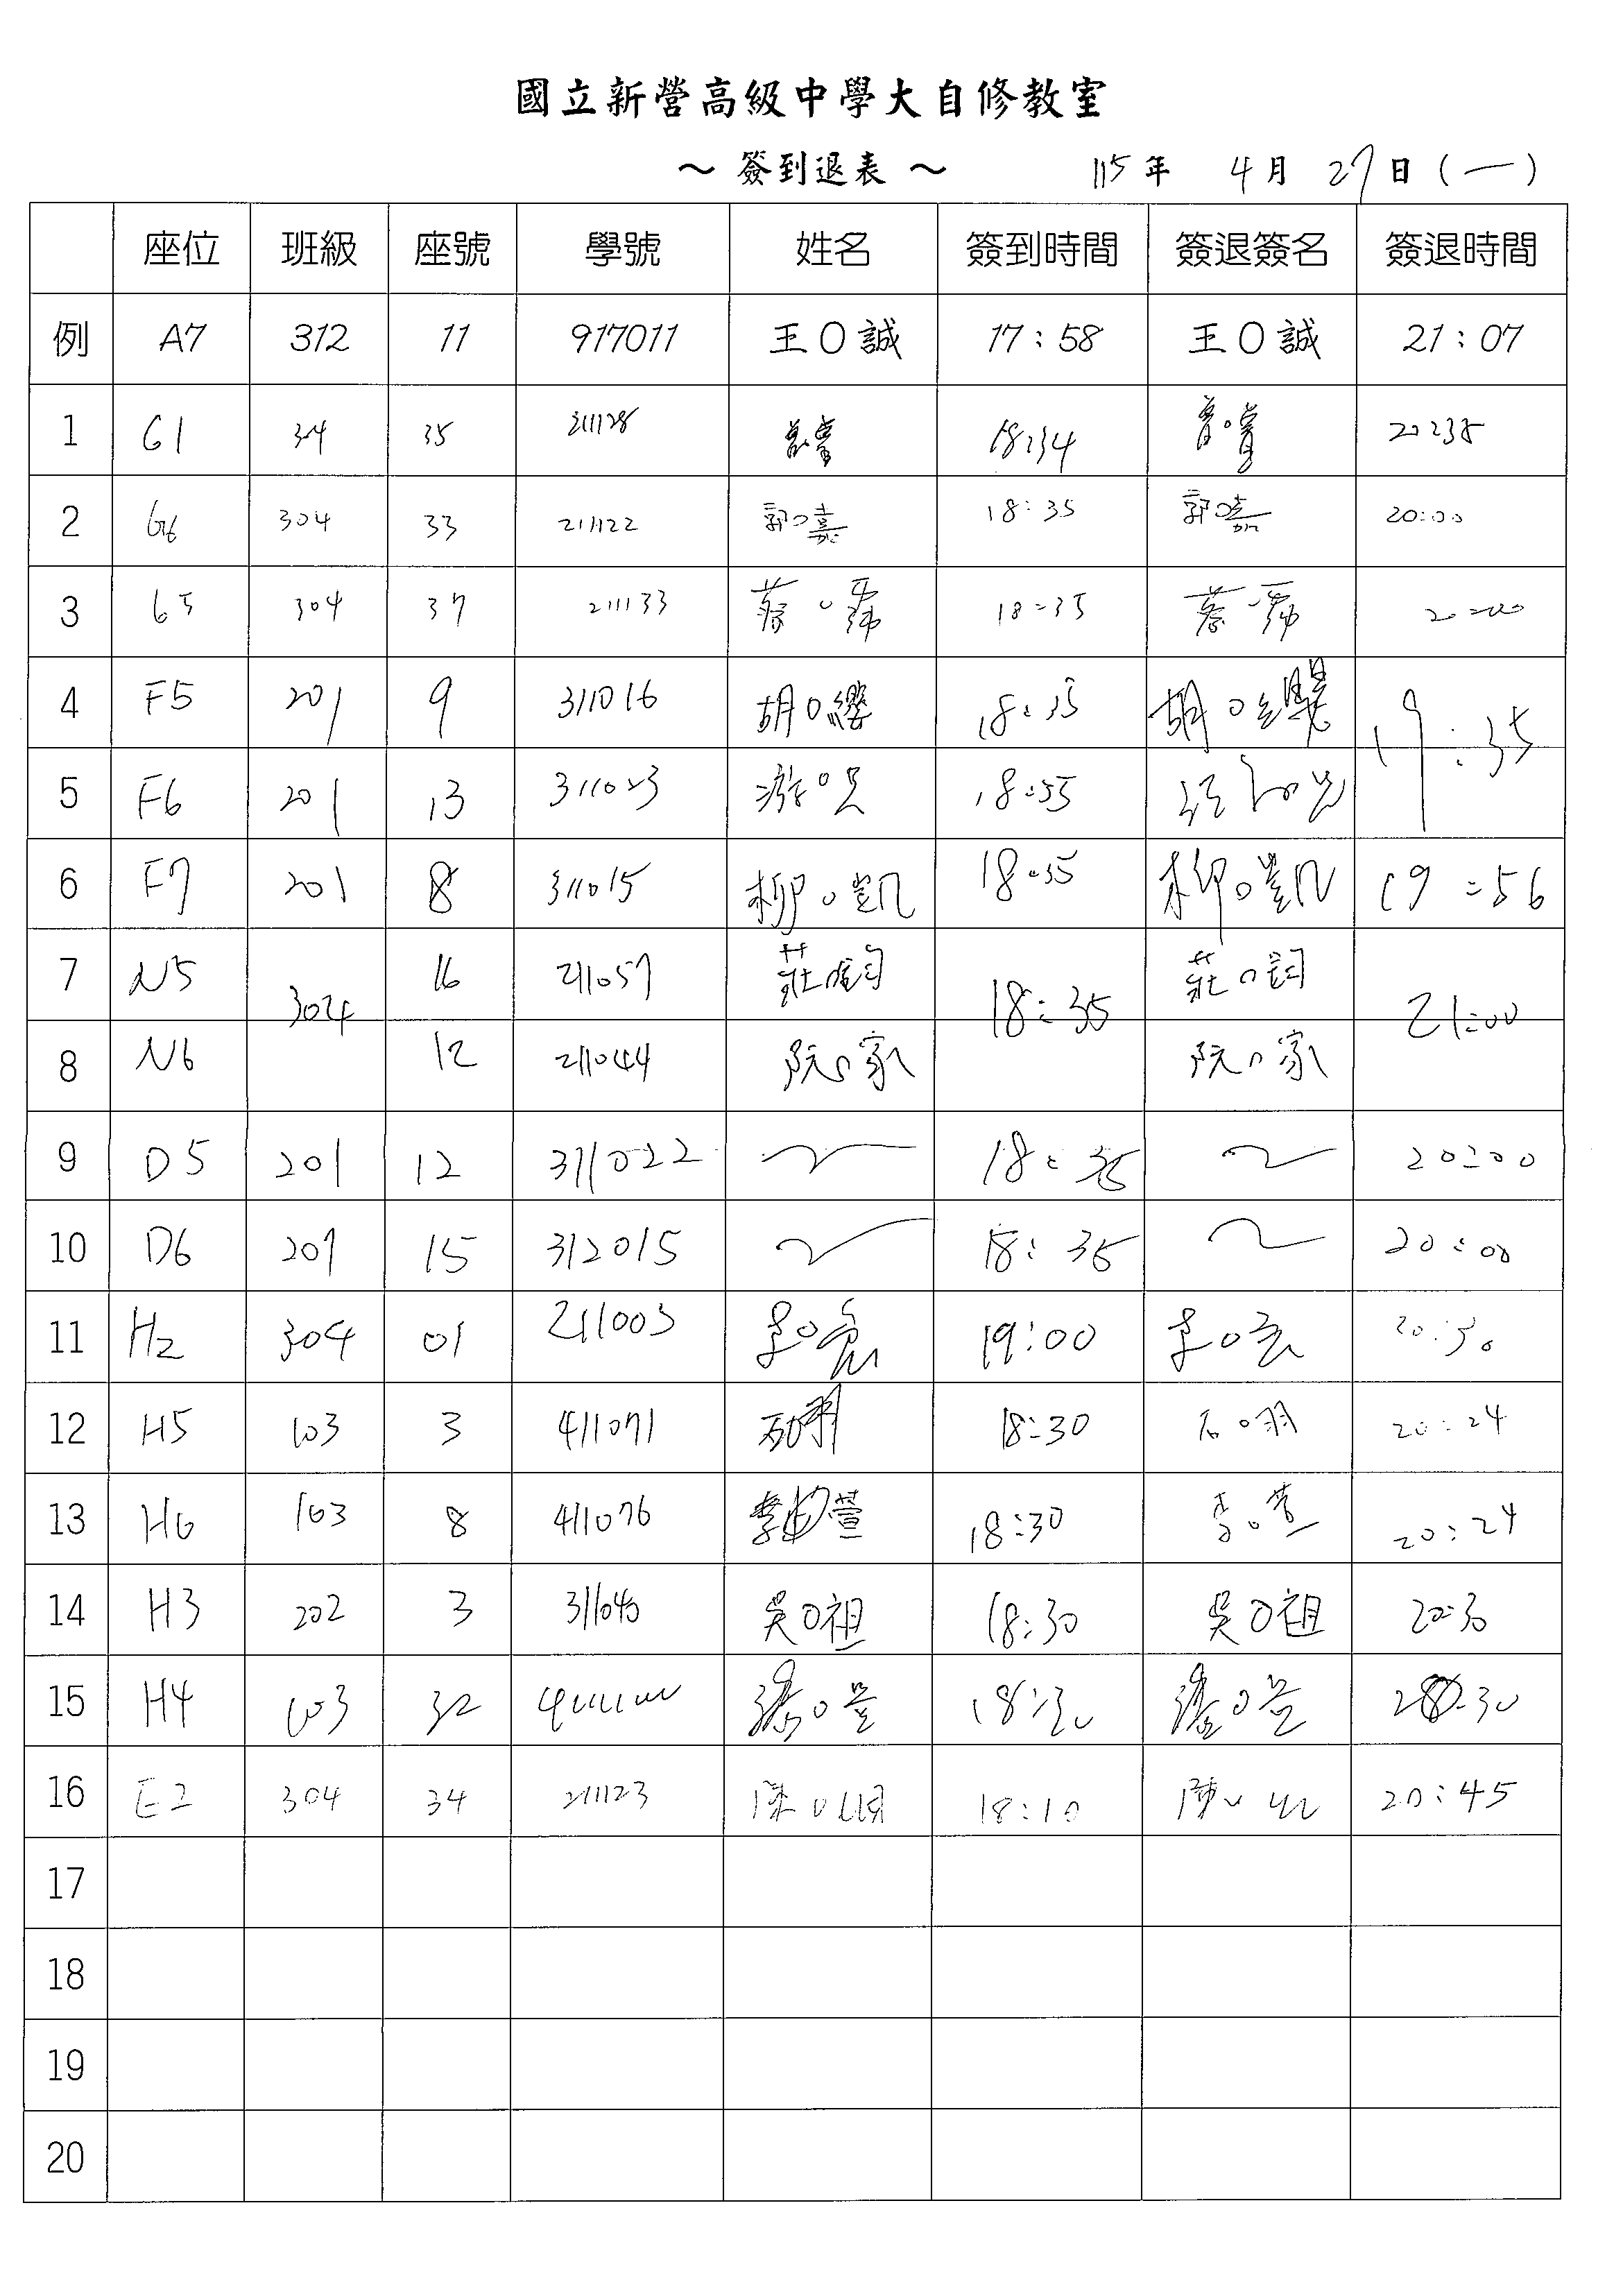 國立新營高級中學大自修教室
～ 簽到退表 ～ 115年 4月 27日(一)
座位 班級 座號 學號 姓名 簽到時間 簽退簽名 簽退時間
例 A7 312 11 917011 王O誠 17:58 王O誠 21:07
1 G1 304 35 211128 18:34 20:35
2 G6 304 33 211122 郭O嘉 18:35 郭O嘉 20:00
3 G5 304 37 211133 蔡O 18:35 蔡 20:00
4 F5 201 9 311016 胡O纓 18:35 胡O纓 19:35
5 F6 201 13 311023 游O 18:35
6 F7 201 8 311015 柳O凱 18:35 柳O凱 19:56
7 N5 304 16 211057 莊O 18:35 莊O 21:00
8 N6 12 211044 阮O家 阮O家
9 D5 201 12 311022 18:35 20:00
10 D6 201 15 312015 18:35 20:00
11 H2 304 01 211003 李O 19:00 李O 20:30
12 H5 103 3 411071 石O羽 18:30 石O羽 20:24
13 H6 103 8 411076 李O萱 18:30 李O萱 20:24
14 H3 202 3 311040 吳O祖 18:30 吳O祖 20:30
15 H4 103 32 18:30 20:30
16 E2 304 34 211123 陳O 18:10 陳 20:45
17
18
19
20